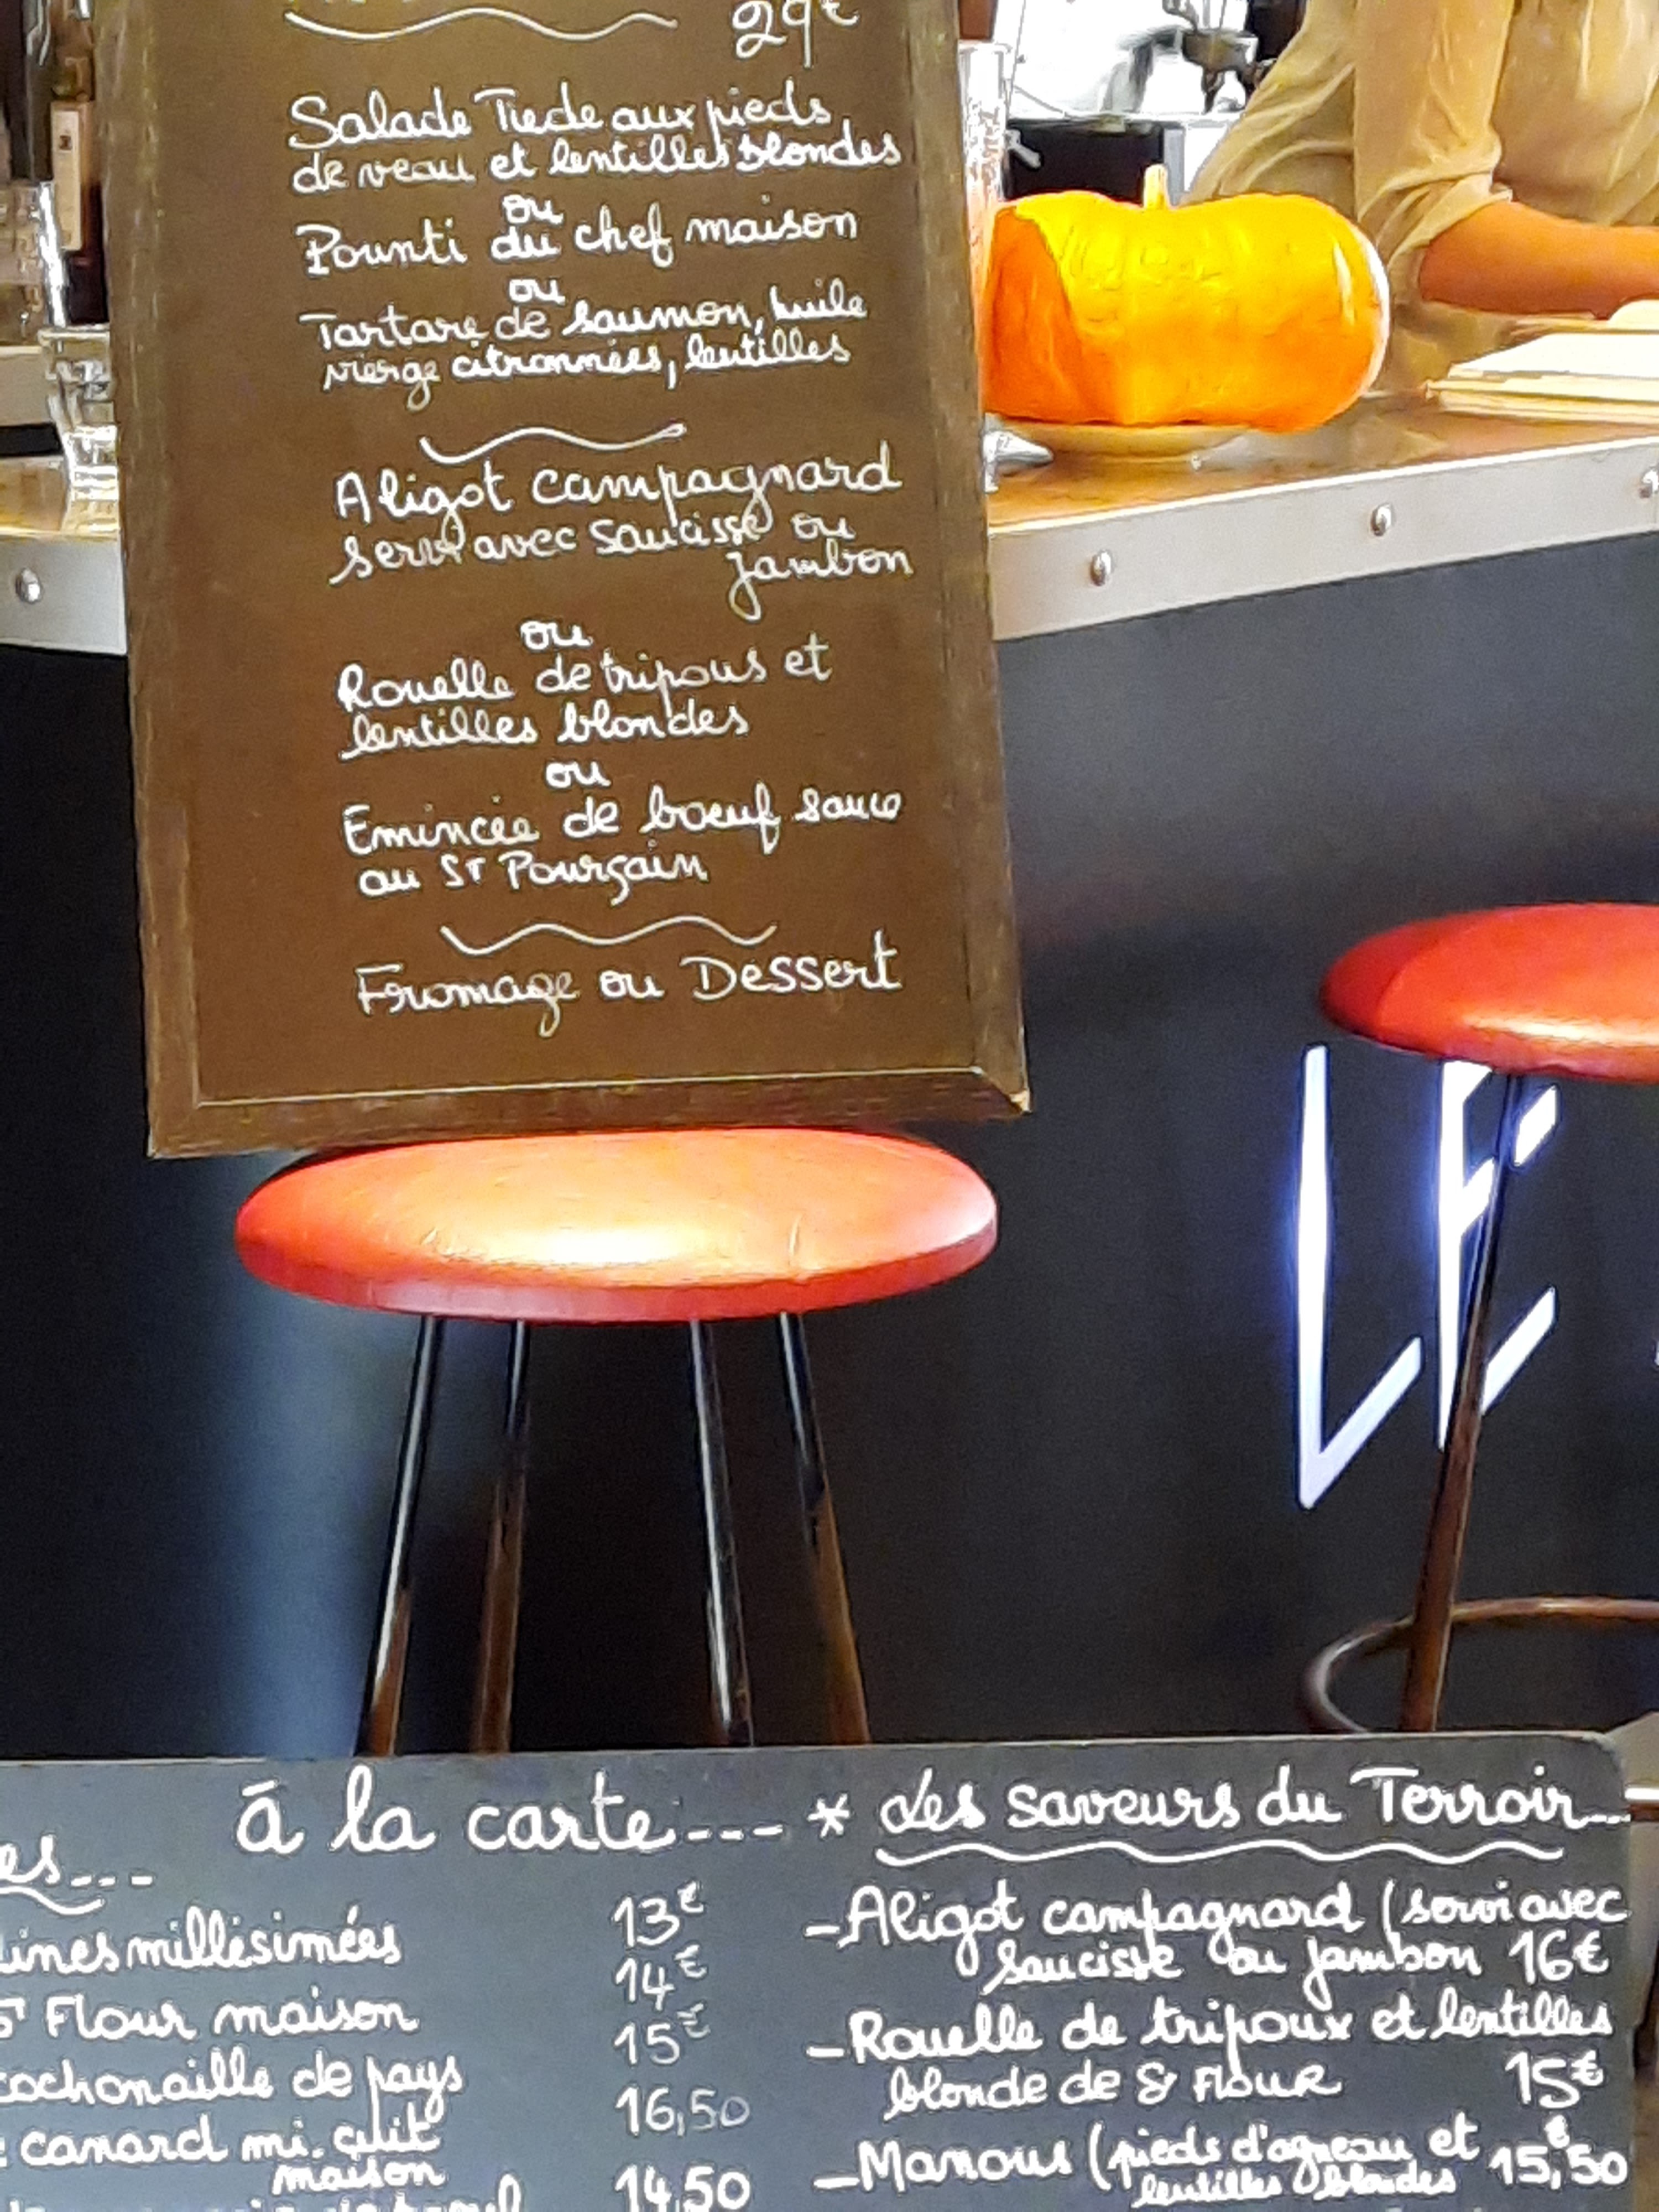 29€
Salade Tiede aux pieds
de veau et lentilles blondes
ou
Pounti du chef maison
ou
Tartare de saumon, huile
vierge citronnées, lentilles
Aligot campagnard
servi avec saucisse ou
jambon
ou
Rouelle de tripous et
lentilles blondes
ou
Emincée de boeuf sauce
au ST Pourçain
Fromage ou Dessert
LE
à la carte---- * Les saveurs du Terroir...
es---
dines millésimées 13€
14€
ST Flour maison 15€
cochonaille de pays 16,50
canard mi-cuit
maison 14,50
-Aligot campagnard (servi avec
saucisse ou jambon 16€
-Rouelle de tripoux et lentilles
blonde de St FLOUR 15€
-Manous (pieds d'agneau et
lentilles blondes 15,50€